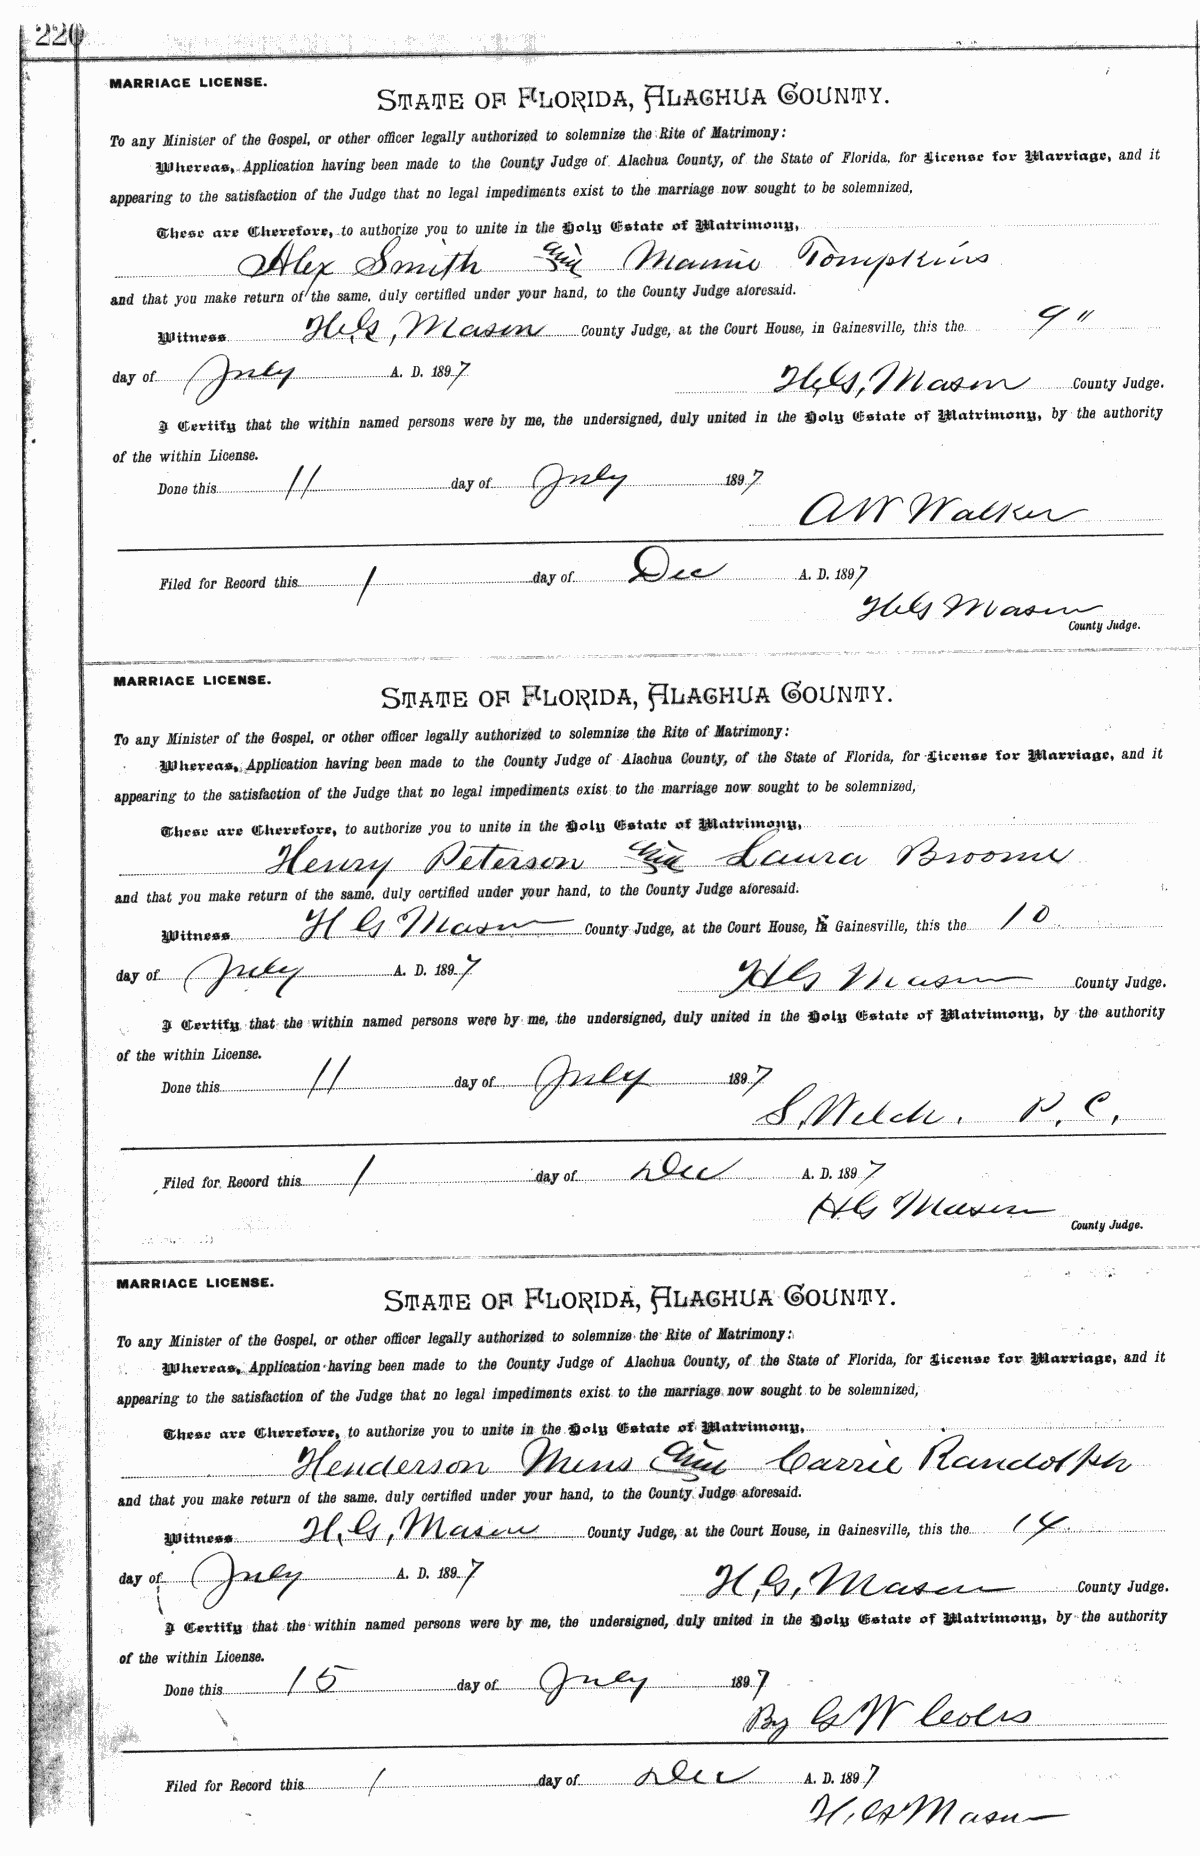 220
MARRIAGE LICENSE.
STATE OF FLORIDA, ALACHUA COUNTY.
To any Minister of the Gospel, or other officer legally authorized to solemnize the Rite of Matrimony:
Whereas, Application having been made to the County Judge of Alachua County, of the State of Florida, for License for Marriage, and it
appearing to the satisfaction of the Judge that no legal impediments exist to the marriage now sought to be solemnized,
These are Therefore, to authorize you to unite in the Holy Estate of Matrimony,
Alex Smith and Mamie Tompkins
and that you make return of the same, duly certified under your hand, to the County Judge aforesaid.
Witness H.G, Mason County Judge, at the Court House, in Gainesville, this the 9"
day of July A. D. 1897
H.G, Mason County Judge.
I Certify that the within named persons were by me, the undersigned, duly united in the Holy Estate of Matrimony, by the authority
of the within License.
Done this 11 day of July 1897
A W Walker
Filed for Record this 1 day of Dec A. D. 1897
H G Mason
County Judge.
MARRIAGE LICENSE.
STATE OF FLORIDA, ALACHUA COUNTY.
To any Minister of the Gospel, or other officer legally authorized to solemnize the Rite of Matrimony:
Whereas, Application having been made to the County Judge of Alachua County, of the State of Florida, for License for Marriage, and it
appearing to the satisfaction of the Judge that no legal impediments exist to the marriage now sought to be solemnized,
These are Therefore, to authorize you to unite in the Holy Estate of Matrimony,
Henry Peterson and Laura Broome
and that you make return of the same, duly certified under your hand, to the County Judge aforesaid.
Witness H G Mason County Judge, at the Court House, in Gainesville, this the 10
day of July A. D. 1897
H G Mason County Judge.
I Certify that the within named persons were by me, the undersigned, duly united in the Holy Estate of Matrimony, by the authority
of the within License.
Done this 11 day of July 1897
S. Welch. P. C.
Filed for Record this 1 day of Dec A. D. 1897
H G Mason
County Judge.
MARRIAGE LICENSE.
STATE OF FLORIDA, ALACHUA COUNTY.
To any Minister of the Gospel, or other officer legally authorized to solemnize the Rite of Matrimony:
Whereas, Application having been made to the County Judge of Alachua County, of the State of Florida, for License for Marriage, and it
appearing to the satisfaction of the Judge that no legal impediments exist to the marriage now sought to be solemnized,
These are Therefore, to authorize you to unite in the Holy Estate of Matrimony,
Henderson Mins and Carrie Randolph
and that you make return of the same, duly certified under your hand, to the County Judge aforesaid.
Witness H, G, Mason County Judge, at the Court House, in Gainesville, this the 14
day of July A. D. 1897
H, G, Mason County Judge.
I Certify that the within named persons were by me, the undersigned, duly united in the Holy Estate of Matrimony, by the authority
of the within License.
Done this 15 day of July 1897
By G W Coles
Filed for Record this 1 day of Dec A. D. 1897
H, G Mason